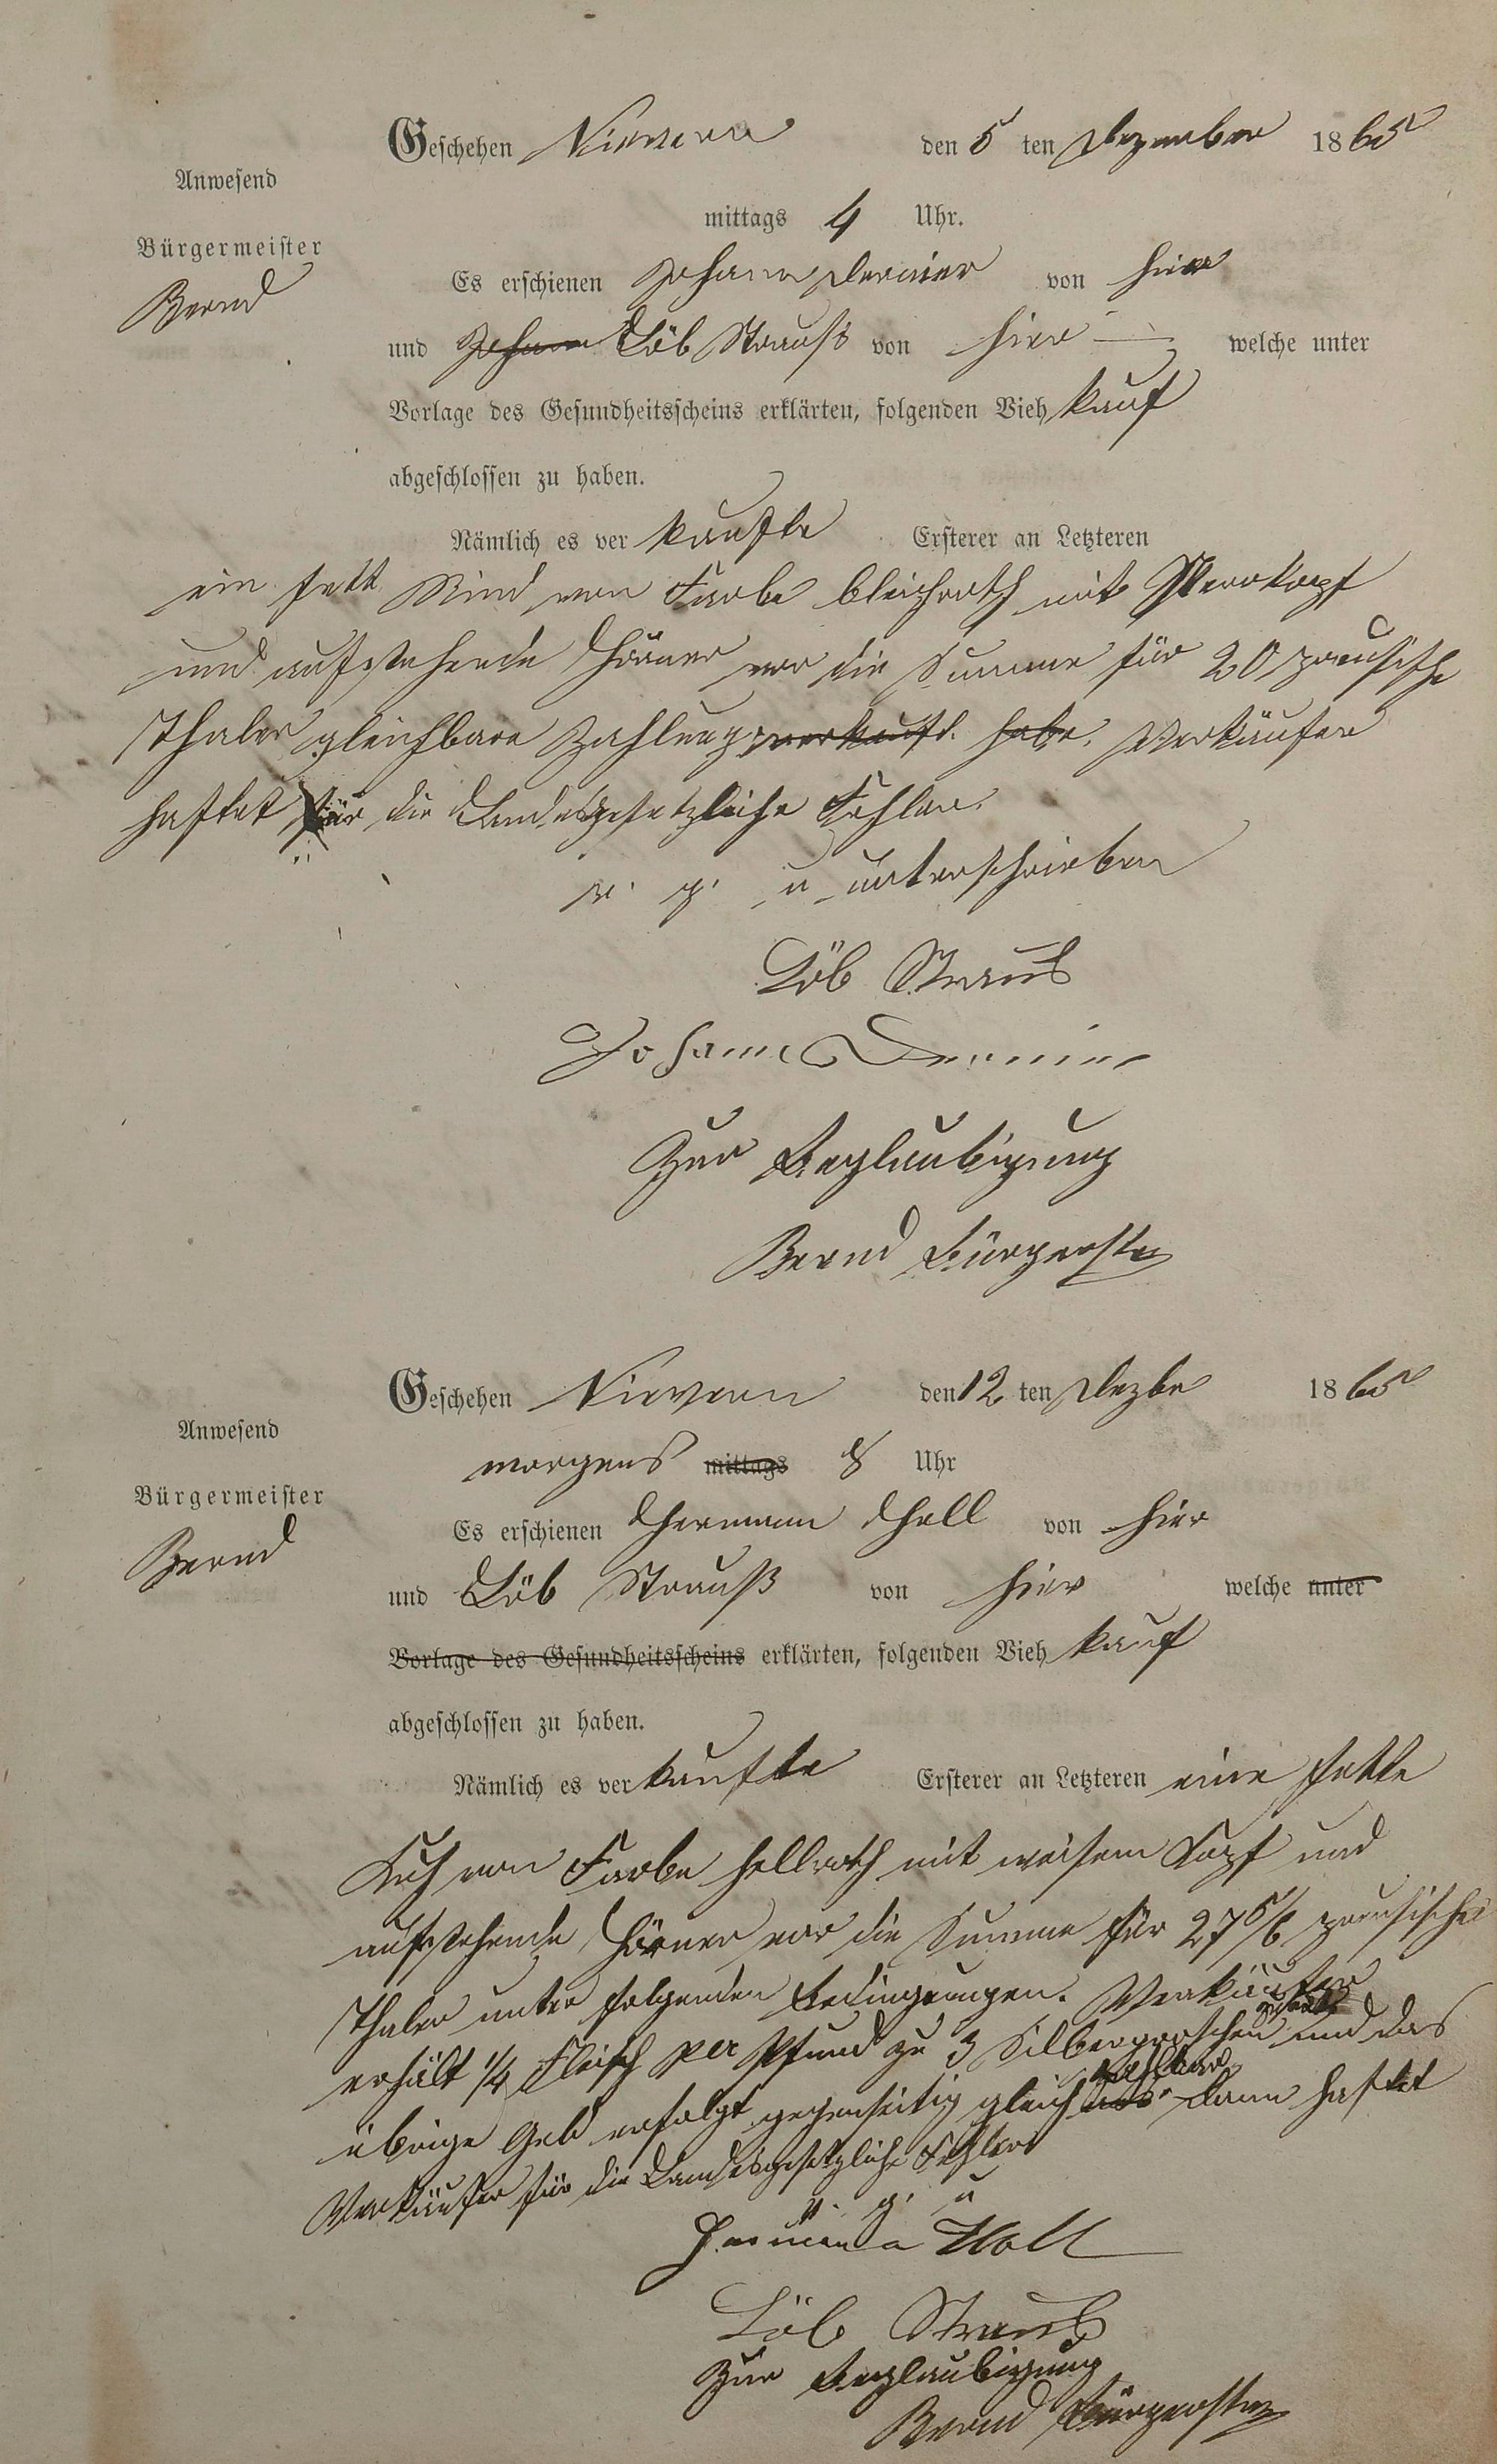 Geschehen Nievern den 5 ten Dezember 1865
Anwesend
mittags 4 Uhr.
Bürgermeister
Bernd
Es erschienen Johann Dernier von hier
und Johann Löb Strauß von hier welche unter
Vorlage des Gesundheitsscheins erklärten, folgenden Vieh kauf
abgeschlossen zu haben.
Nämlich es ver kaufte Ersterer an Letzteren
ein fett Rind von Farbe bleichroth mit Sternkopf
und aufstehende Hörner vor die Summe für 20 preusische
Thaler gleichbare Zahlung verkauft habe. Verkäufer
haftet für die Landesgesetzliche Fehler.
v. g. u unterschrieben
Löb Straus
Johann Dernier
Zur Beglaubigung
Bernd Bürgerstr
Geschehen Nievern den 12 ten Dezbe 1865
Anwesend
morgens mittags 8 Uhr
Bürgermeister
Bernd
Es erschienen Hermann Holl von hier
und Löb Strauß von hier welche unter
Vorlage des Gesundheitsscheins erklärten, folgenden Vieh kauf
abgeschlossen zu haben.
Nämlich es verkaufte Ersterer an Letzteren eine fette
Kuh von Farbe hellroth mit weisem Kopf und
aufstehende Hörner vor die Summe für 27 5/6 preusische
Thaler unter folgenden Bedingungen. Verkäufer
erhält 1/4 Fleisch per Pfund zu 3 Silbergroschen und das
übrige Geld erfolgt gegenseitig gleich zahlbar Dann haftet
Verkäufer für die Landesgesetzliche Fehler
v. g. u
Hermann Holl
Löb Straus
Zur Beglaubigung
Bernd Bürgerstr